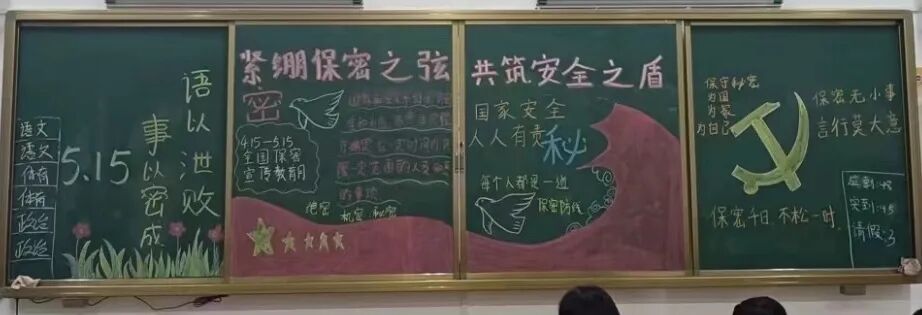 语文
语文
体育
体育
政治
政治
5.15
事以密成
语以泄败
紧绷保密之弦
密
4.15—5.15
全国保密
宣传教育月
的事项
绝密 机密 秘密
共筑安全之盾
国家安全
人人有责
秘
每个人都是一道
保密防线
保守秘密
为国
为家
为自己
保密无小事
言行莫大意
保密千日,不松一时.
应到:48
实到:45
请假:3